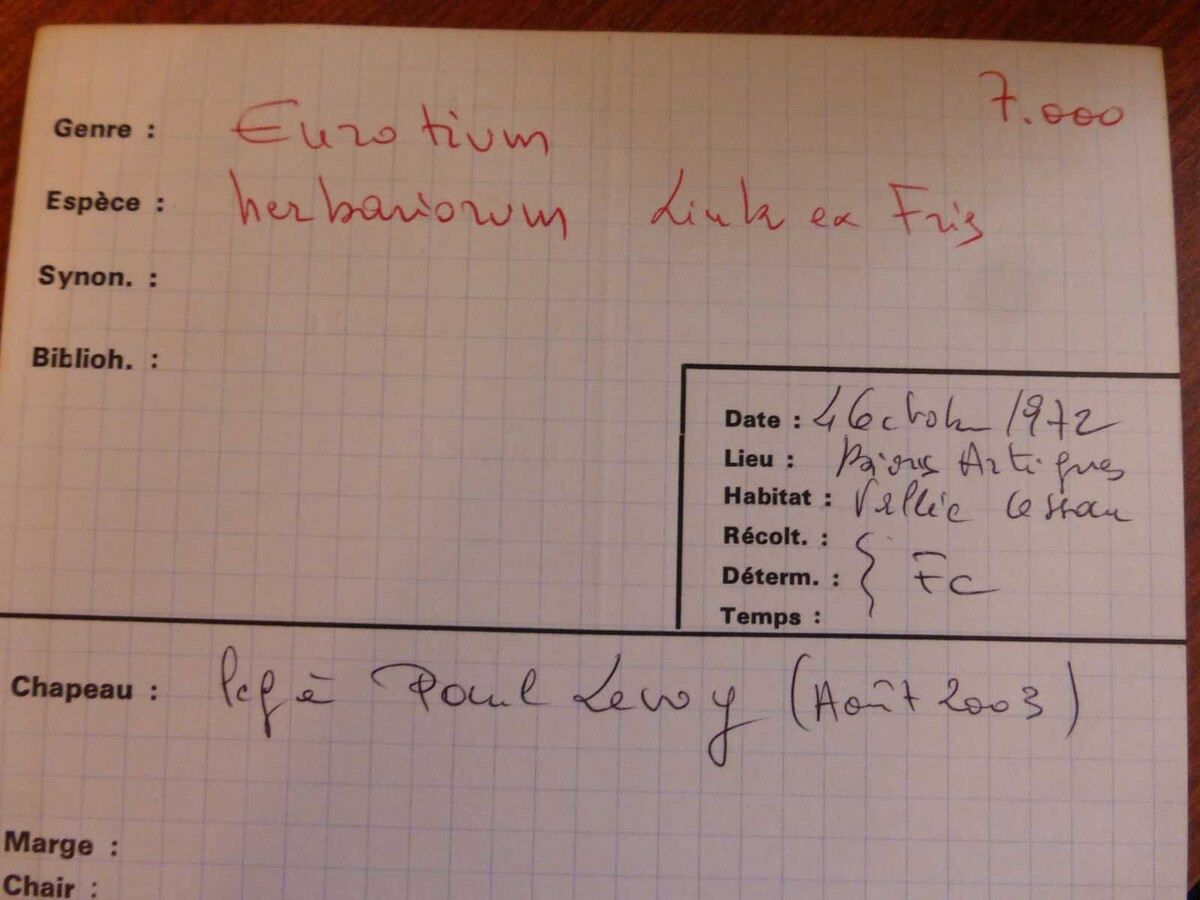 7.000
Genre : Eurotium
Espèce : herbariorum Link ex Fris
Synon. :
Biblioh. :
Date : 4 Octobre 1972
Lieu : Bious Artigues
Habitat : Vallée
Récolt. :
Déterm. : } FC
Temps :
Chapeau : à Paul Leroy (Août 2003)
Marge :
Chair :